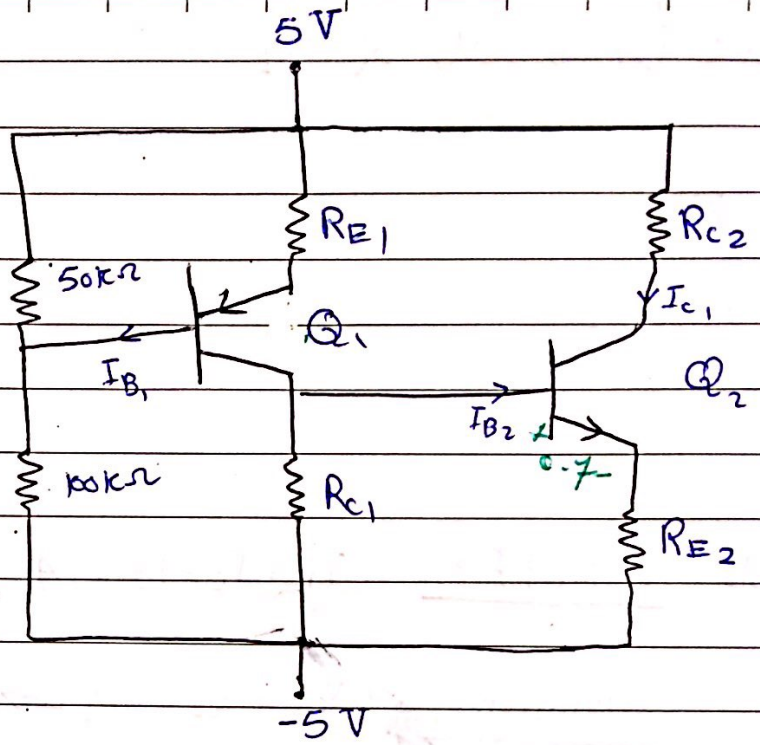 5 V
R_E1
R_C2
50kΩ
I_C1
Q1
I_B1
Q2
I_B2
+
0.7-
100kΩ
R_C1
R_E2
-5 V